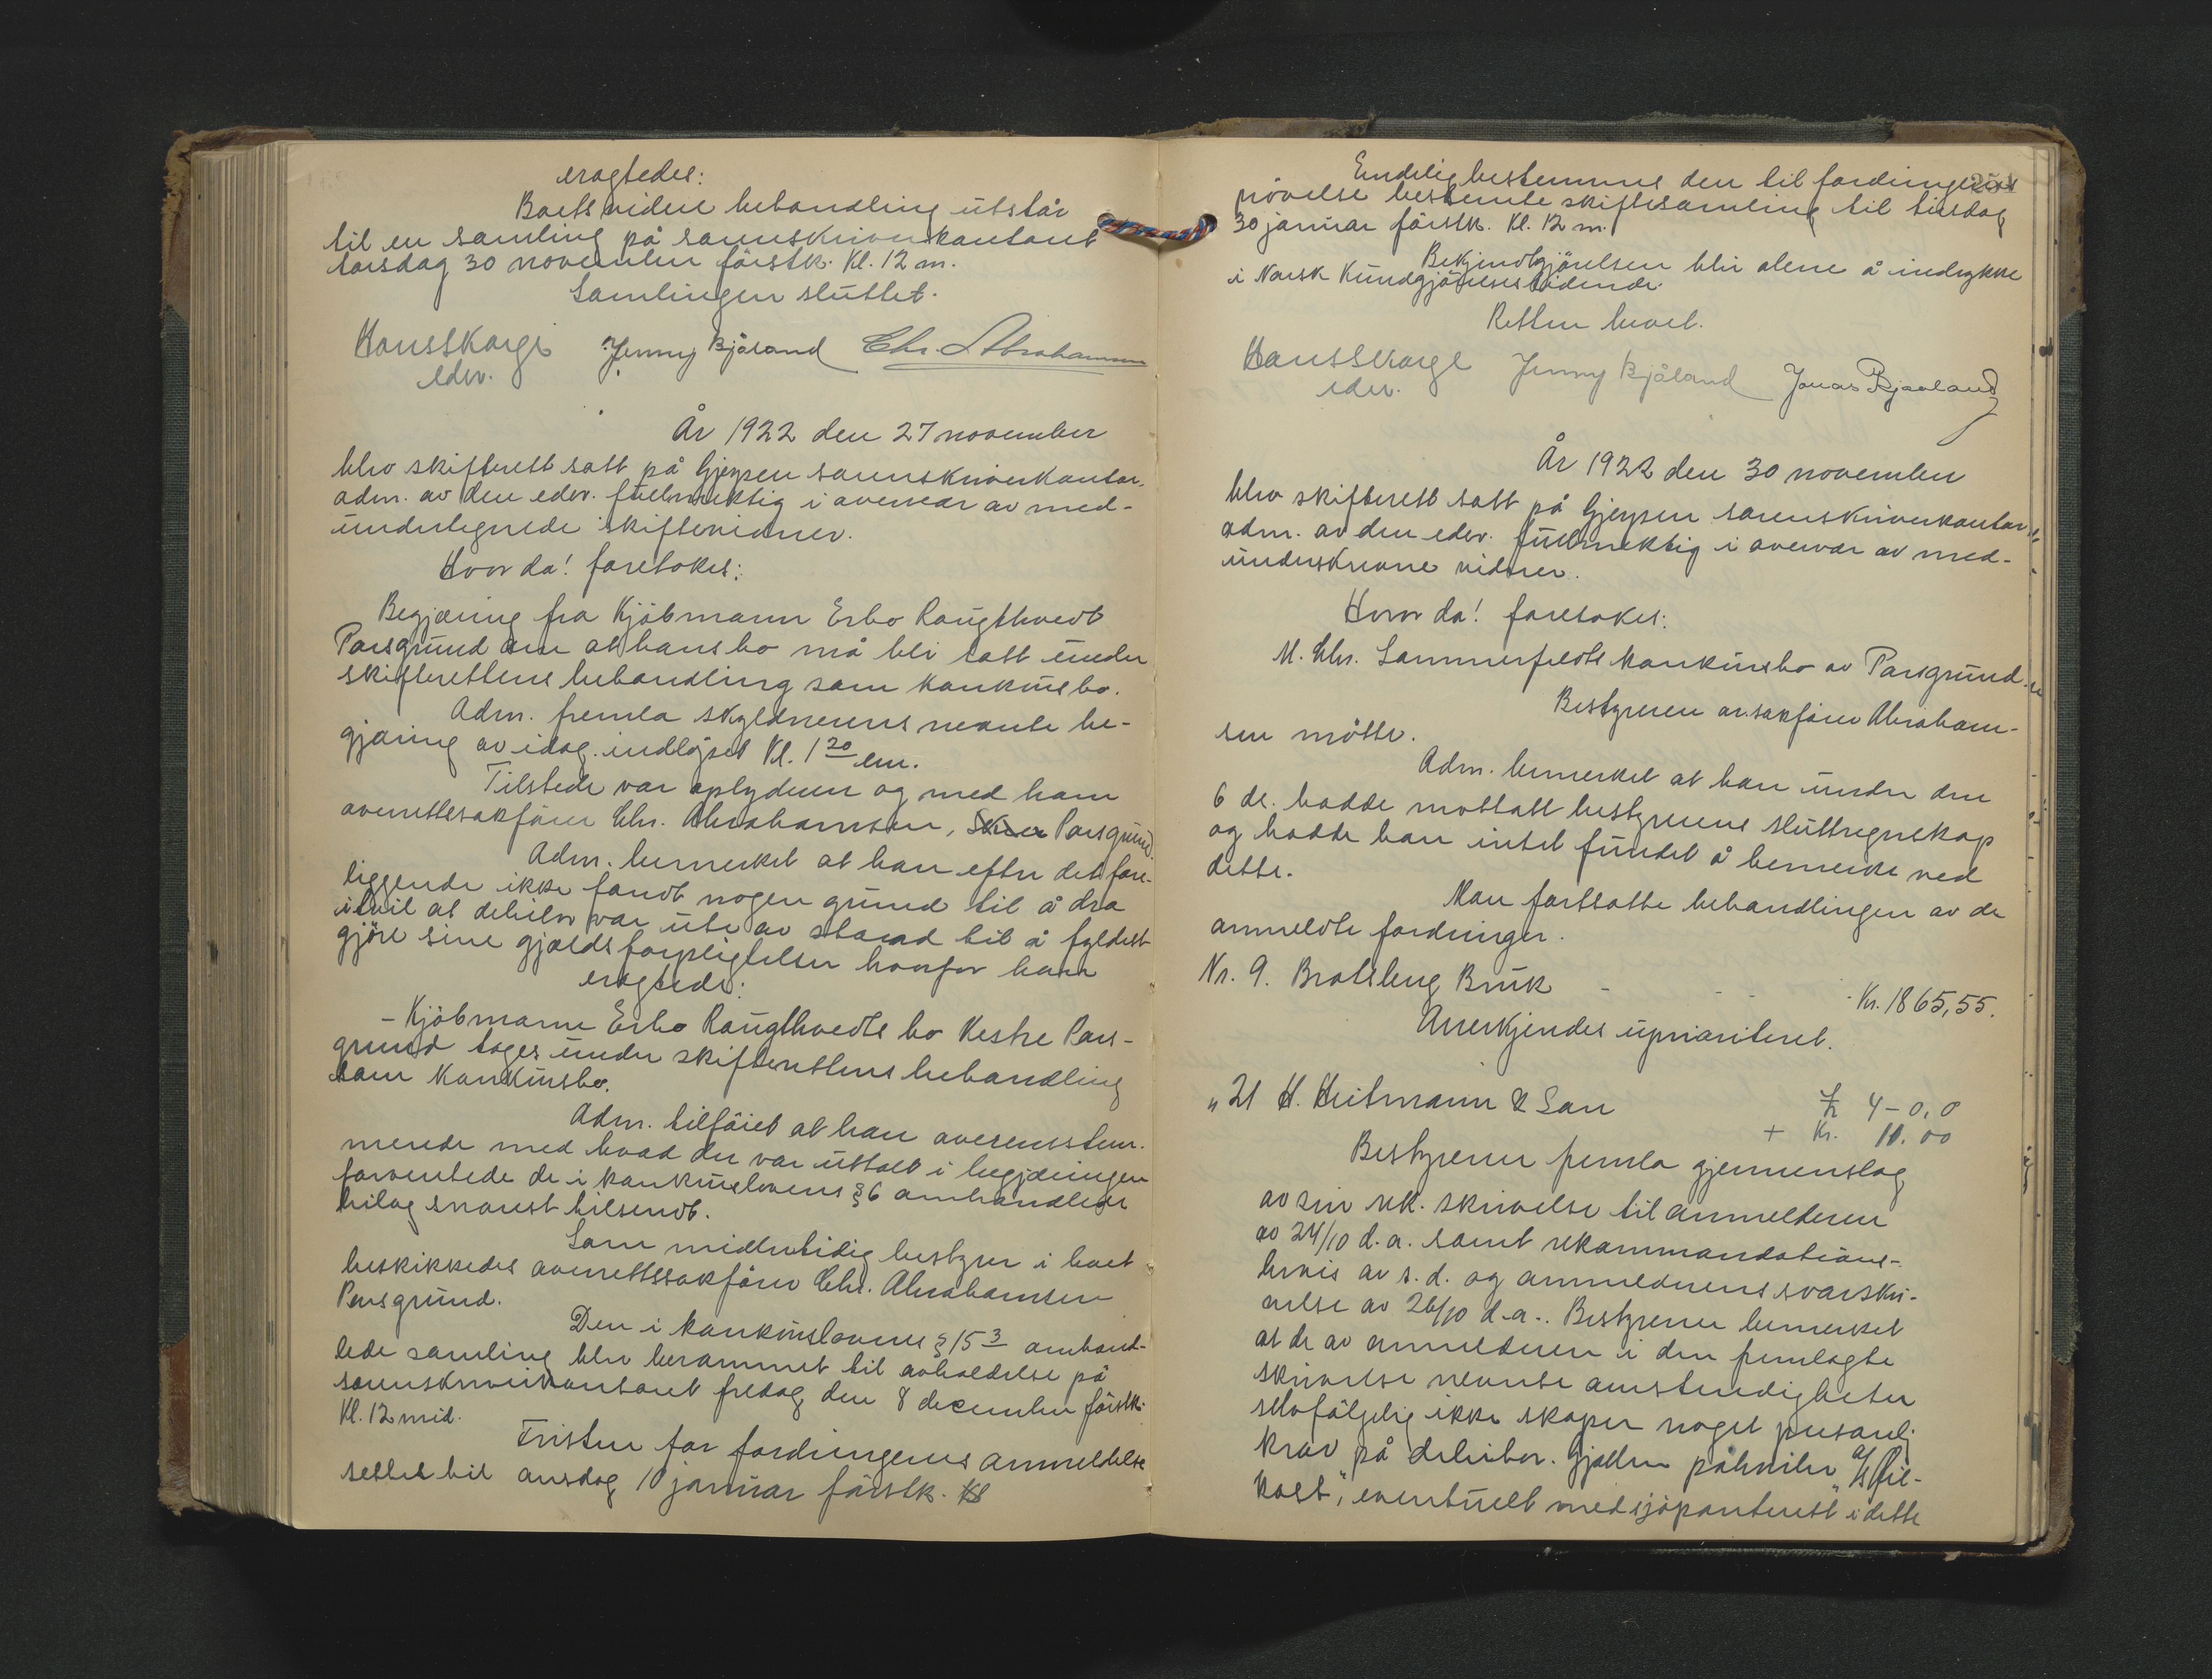 eragtedes:
Boets videre behandling utstår
til en samling på sorenskriverkontoret
torsdag 30 november förstk. Kl. 12 m.
Samlingen sluttet.
Hans Skarge Jenny Bjåland Chr. Abrahamsen
edsv.
År 1922 den 27 november
blev skifterett satt på Gjerpen sorenskriverkontor,
adm. av den edsv. fuldmektig i overvær av med-
undertegnede skiftevidner.
Hvor da! foretokes:
Begjæring fra Kjöbmann Erbo Raugthvedt
Porsgrund om at hans bo må bli tatt under
skifterettens behandling som konkursbo.
Adm. fremla skyldnerens nevnte be-
gjæring av idag. indlöpet Kl. 1 20 em.
Tilstede var oplyderen og med ham
overrettssakförer Chr. Abrahamsen, Skien Porsgrund.
Adm. bemerket at han efter det fore-
liggende ikke fandt nogen grund til å dra
i tvil at debitor var ute av stand til å fyldest-
gjöre sine gjældsforpligtelser hvorfor han
eragtede:
- Kjöbmann Erbo Raugthvedts bo Vestre Pors-
grund tages under skifterettens behandling
som konkursbo.
Adm. tilföiet at han overensstem-
mende med hvad der var uttalt i begjæringen
forventede de i konkurslovens § 6 omhandlede
bilag snarest tilsendt.
Som midlertidig bestyrer i boet
beskikkedes overrettssakförer Chr. Abrahamsen
Porsgrund.
Den i konkurslovens § 15 3 omhand-
lede samling blev berammet til avholdelse på
sorenskriverkontoret fredag den 8 december förstk.
Kl. 12 mid.
Fristen for fordringenes anmeldelse
settes til onsdag 10 januar förstk. Kl
Endelig bestemmes den til fordringenes
prövelse bestemte skiftesamling til tirsdag
30 januar förstk. Kl. 12 m.
Bekjendtgjörelsen blir alene å indrykke
i Norsk Kundgjörelsestidende.
Retten hevet.
Hans Skarge Jenny Bjåland Jonas Bjaaland
edsv.
År 1922 den 30 november
blev skifterett satt på Gjerpen sorenskriverkontor,
adm. av den edsv. fuldmektig i overvær av med-
underskrevne vidner.
Hvor da! foretokes:
M. Chr. Sommerfeldts konkursbo av Porsgrund.
Bestyreren o.r.sakförer Abraham-
sen mötte.
Adm. bemerket at han under den
6 ds. hadde mottatt bestyrerens sluttregnskap
og hadde han intet fundet å bemerke ved
dette.
Man fortsatte behandlingen av de
anmeldte fordringer.
Nr. 9. Bratsberg Bruk - - - - Kr. 1865,55.
Anerkjendes uprioritert.
" 21 H. Heitmann & Sön £ 4-0,0
+ Kr. 10.00
Bestyreren fremla gjennemslag
av sin rek. skrivelse til anmelderen
av 24/10 d.a. samt rekommandations-
bevis av s.d. og anmelderens svarskri-
velse av 26/10 d.a.. Bestyreren bemerket
at de av anmelderen i den fremlagte
skrivelse nevnte omstendigheter
selvfölgelig ikke skaper noget personlig
krav på debitor. Gjælden påhviler
eventuelt med sjöpanterett i dette